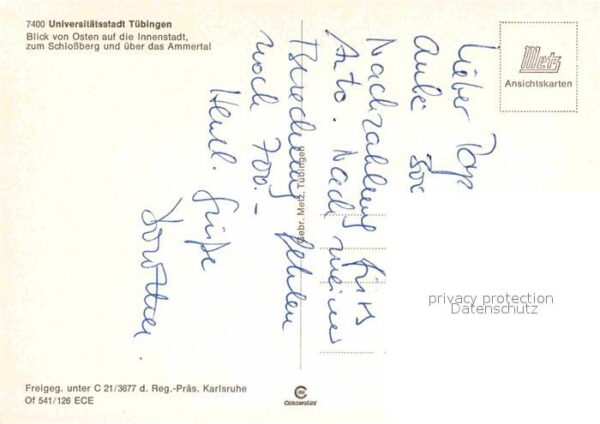 7400 Universitätsstadt Tübingen
Blick von Osten auf die Innenstadt,
zum Schloßberg und über das Ammertal
Metz
Ansichtskarten
Lieber Pap
anbei 500
Nachzahlung fürs
Auto. Nach meiner
Berechnung fehlen
noch 700.-
Herzl. Grüße
Dorothee.
Gebr. Metz, Tübingen
privacy protection
Datenschutz
Freigeg. unter C 21/3677 d. Reg.-Präs. Karlsruhe
Of 541/126 ECE